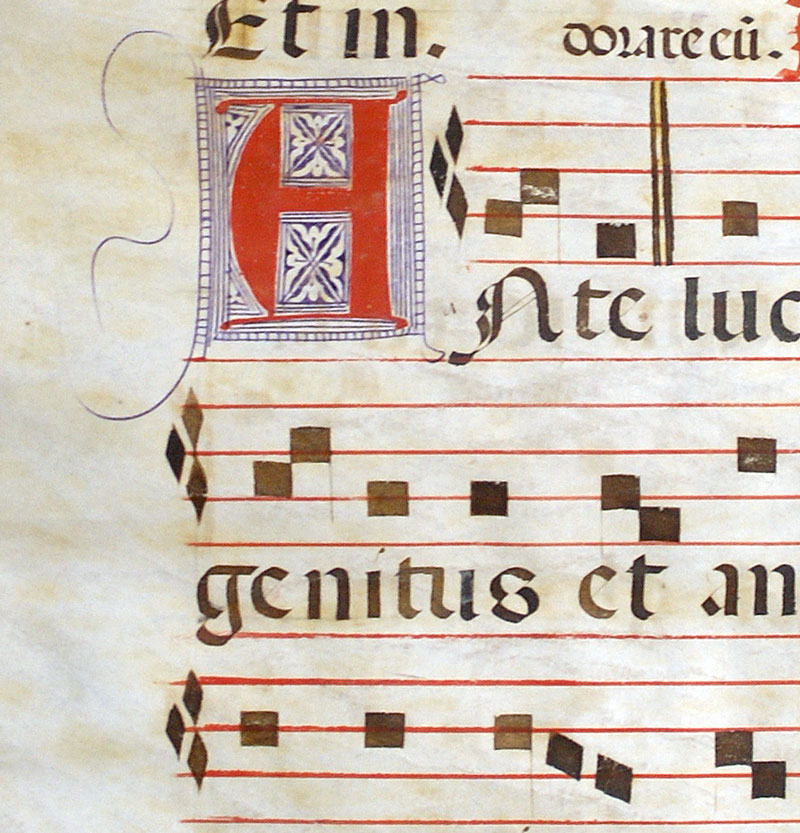 Et in. dorate cū.
Ante luc
genitus et an